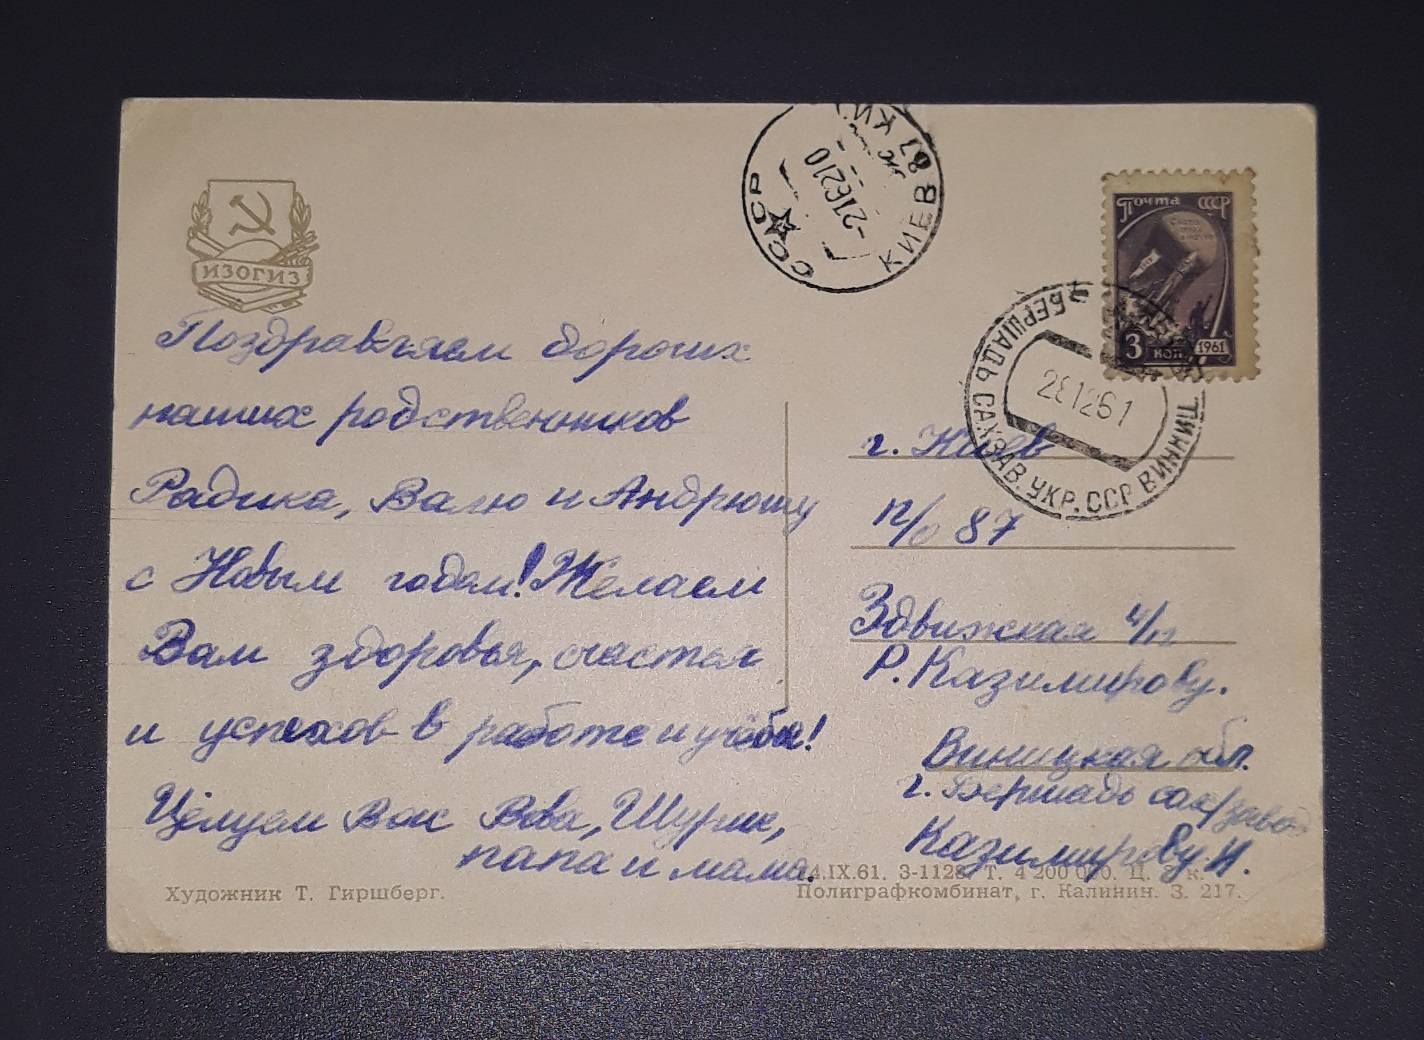 ИЗОГИЗ
Поздравляем дорогих
наших родственников
Радика, Валю и Андрюшу
с Новым годом! Желаем
Вам здоровья, счастья
и успехов в работе и учёбе!
Целуем Вас Вова, Шурик,
папа и мама.
Художник Т. Гиршберг.
СССР
КИЕВ 87
-21 62 10
Почта СССР
3 коп 1961
БЕРШАДЬ САХЗАВ. УКР. ССР ВИННИЦ.
28 12 61
г. Киев
п/о 87
Здвижская 4/12
Р. Казимирову.
Виницкая обл.
г. Бершадь сахзавод
Казимирову И.
14.IX.61. З-1128. Т. 4 200 000. Ц. к.
Полиграфкомбинат, г. Калинин. З. 217.